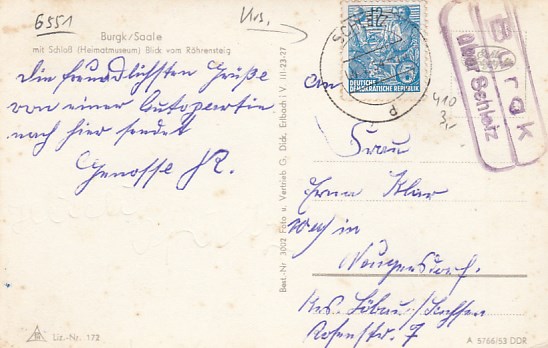 6551
Urs.
Burgk/Saale
mit Schloß (Heimatmuseum) Blick vom Röhrensteig
Die freundlichsten Grüße
von einer Autopartie
nach hier sendet
Genosse
An
Frau
Erna Klar
in
Neugersdorf.
Krs. Löbau/Sachsen
Rosenstr. 7
DEUTSCHE
DEMOKRATISCHE REPUBLIK
Burgk
über Schleiz
410
3,-
Best.-Nr 3002 Foto u. Vertrieb G. Dick, Erlbach i. V. III-23-27
Liz.-Nr. 172
A 5766/53 DDR